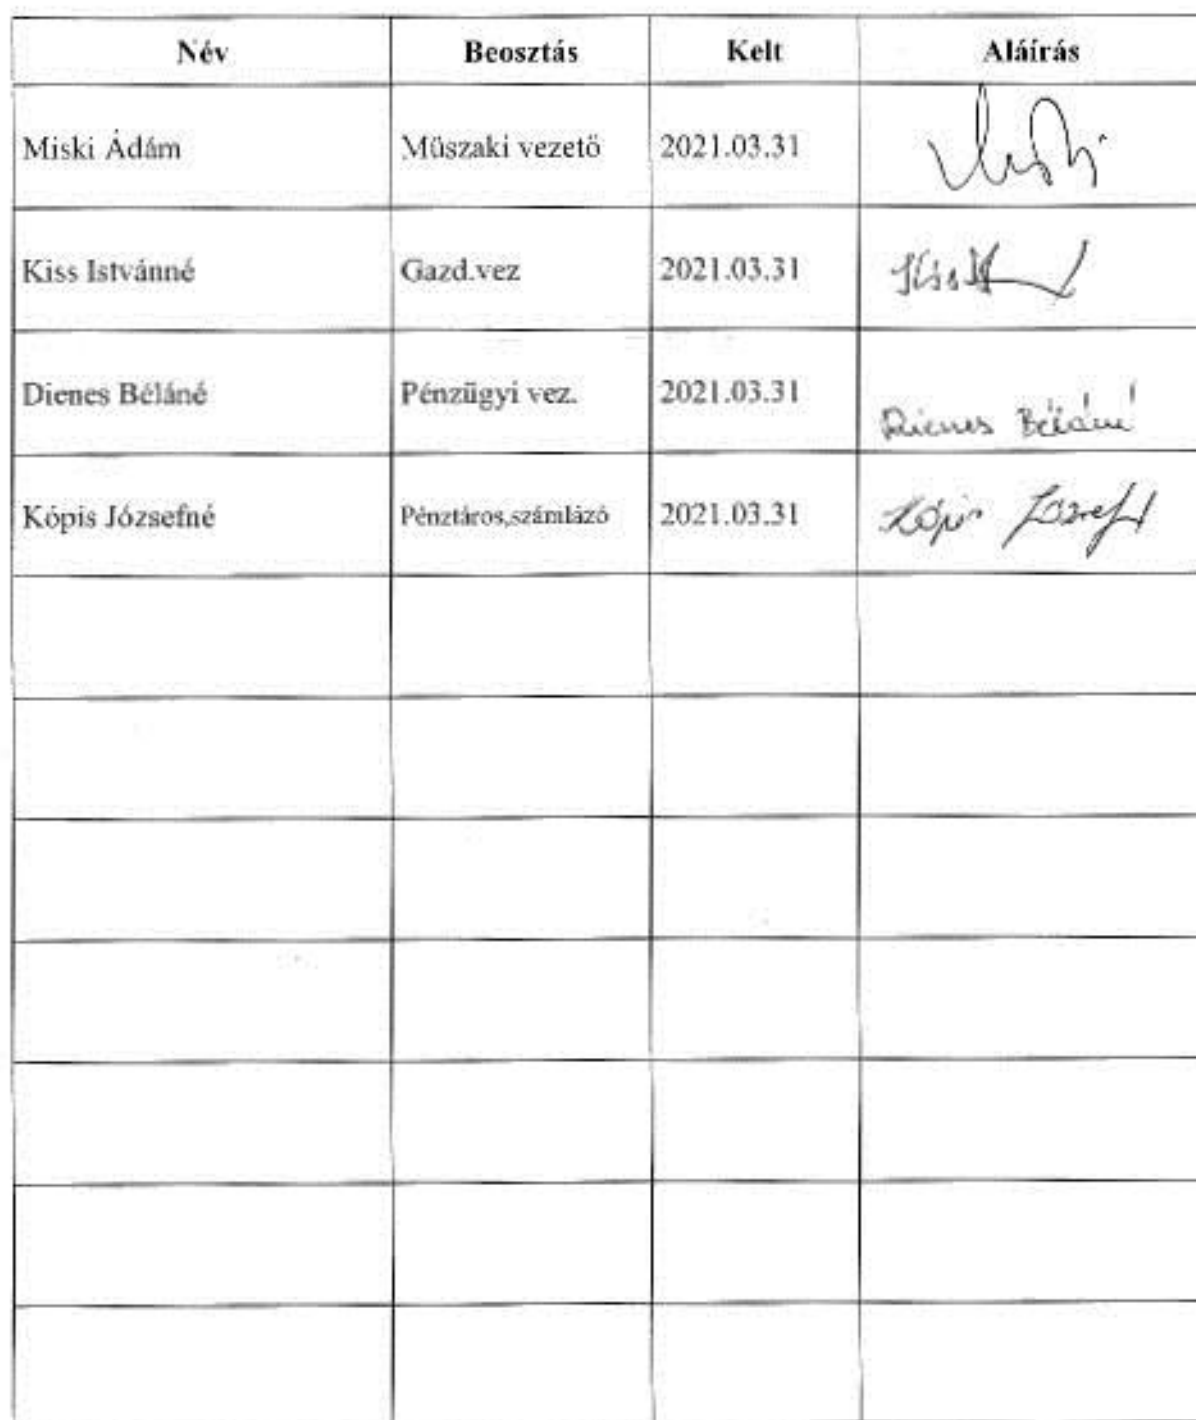 Név Beosztás Kelt Aláírás
Miski Ádám Műszaki vezető 2021.03.31
Kiss Istvánné Gazd.vez 2021.03.31
Dienes Béláné Pénzügyi vez. 2021.03.31 Dienes Béláné
Kópis Józsefné Pénztáros,számlázó 2021.03.31 Kópis Józsefné